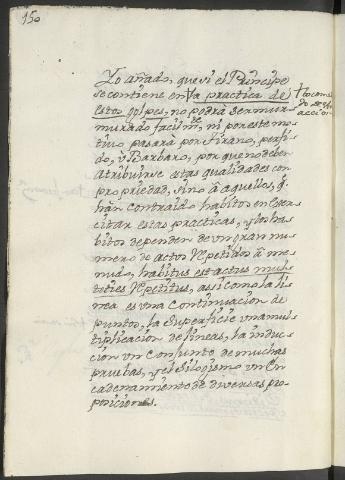 150
Yo añado, que si el Principe
se contiene en la practica de
estos golpes, no podrà ser mur-
murado facilm.te, ni por este mo-
tivo pasarà por Tirano, perfi-
do, ù Barbaro, por que no deben
atribuirse estas qualidades con
propriedad, sino à aquellos, q.
hàn contraido habitos en exer-
citar estas practicas, y los ha-
bitos dependen de un gran nu-
mero de actos repetidos à me-
nudo, habitus est actus mul-
toties repetitus, assi como la li-
nea es una continuacion de
puntos, la superficie una mul-
tiplicacion de lineas, la induc-
cion un conjunto de muchas
pruebas, y el silogismo un en-
cadenamiento de diversas pro-
posiciones.